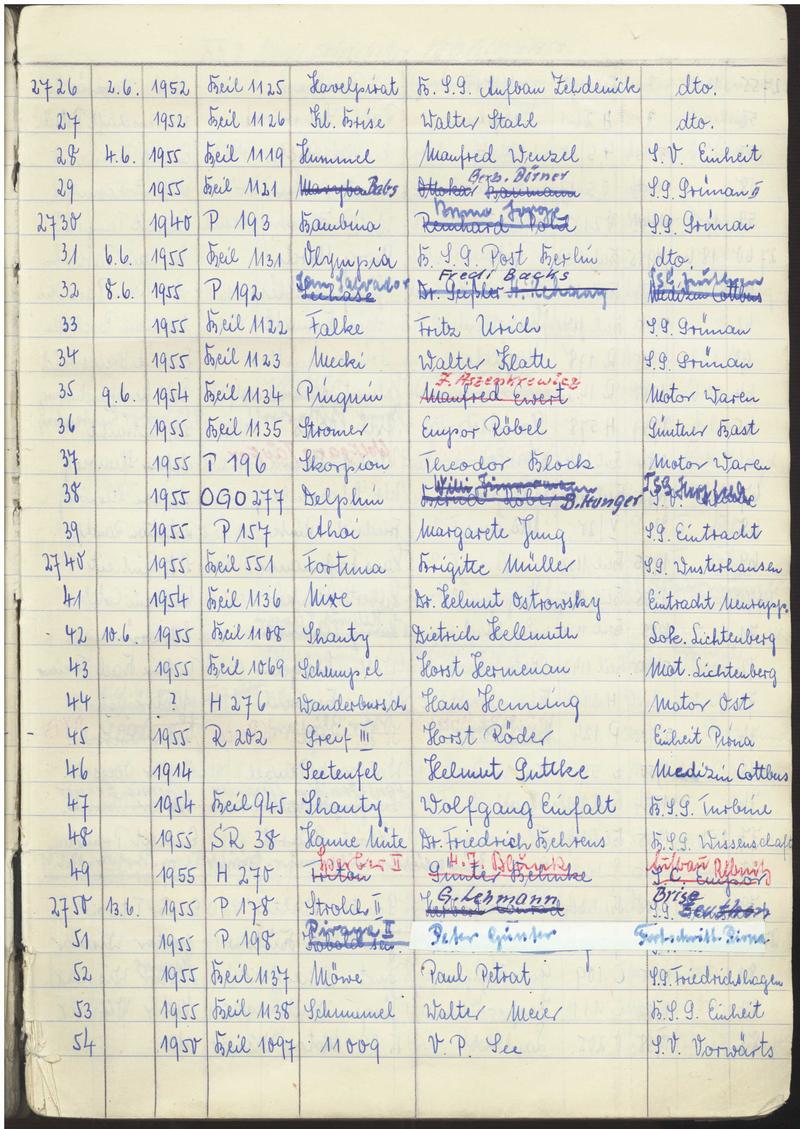 2726 2.6. 1952 Beil 1125 Havelpirat B.S.G. Aufbau Zehdenick dto.
27 1952 Beil 1126 Kl. Brise Walter Stahl dto.
28 4.6. 1955 Beil 1119 Hummel Manfred Wenzel S.V. Einheit
Brb. Dörner
29 1955 Beil 1121 Babs Ottokar Baumann S.G. Grünau II
2730 1940 P 193 Bambina Reinhard S.G. Grünau
31 6.6. 1955 Beil 1131 Olympia B.S.G. Post Berlin dto.
San Salvador Fredi Backs TSG
32 8.6. 1955 P 192 Seehase Dr. Geißler Medizin Cottbus
33 1955 Beil 1122 Falke Fritz Urich S.G. Grünau
34 1955 Beil 1123 Mecki Walter Klatte S.G. Grünau
J. Aszenkrewicz
35 9.6. 1954 Beil 1134 Pinguin Manfred Ewert Motor Waren
36 1955 Beil 1135 Stromer Empor Röbel Günther Bast
37 1955 P 196 Skorpion Theodor Block Motor Waren
Willi TSG
38 1955 OGO 277 Delphin B. Hunger S.V.
39 1955 P 157 Ahoi Margarete Jung S.G. Eintracht
2740 1955 Beil 551 Fortuna Brigitte Müller S.G. Wusterhausen
41 1954 Beil 1136 Nixe Dr. Helmut Ostrowsky Eintracht Neurupp.
42 10.6. 1955 Beil 1108 Shanty Dietrich Hellmuth Lok. Lichtenberg
43 1955 Beil 1069 Schimpel Horst Hermenau Mot. Lichtenberg
44 ? H 276 Wanderbursch Hans Henning Motor Ost
45 1955 R 202 Greif III Horst Röder Einheit Pirna
46 1914 Seeteufel Helmut Guttke Medizin Cottbus
47 1954 Beil 945 Shanty Wolfgang Einfalt B.S.G. Turbine
48 1955 SR 38 Hanne Nüte Dr. Friedrich Behrens B.S.G. Wissenschaft
II H. J. Blunk Aufbau
49 1955 H 270 Triton Günter Behnke S.C. Empor
G. Lehmann Brise
2750 13.6. 1955 P 178 Strolch II Herbert Conrad S.G. Zeuthen
Piraya II
51 1955 P 198 Kobold Peter Günter Fortschritt Pirna
52 1955 Beil 1137 Möwe Paul Petrat S.G. Friedrichshagen
53 1955 Beil 1138 Schummel Walter Meier B.S.G. Einheit
54 1950 Beil 1097 11009 V.P. See S.V. Vorwärts